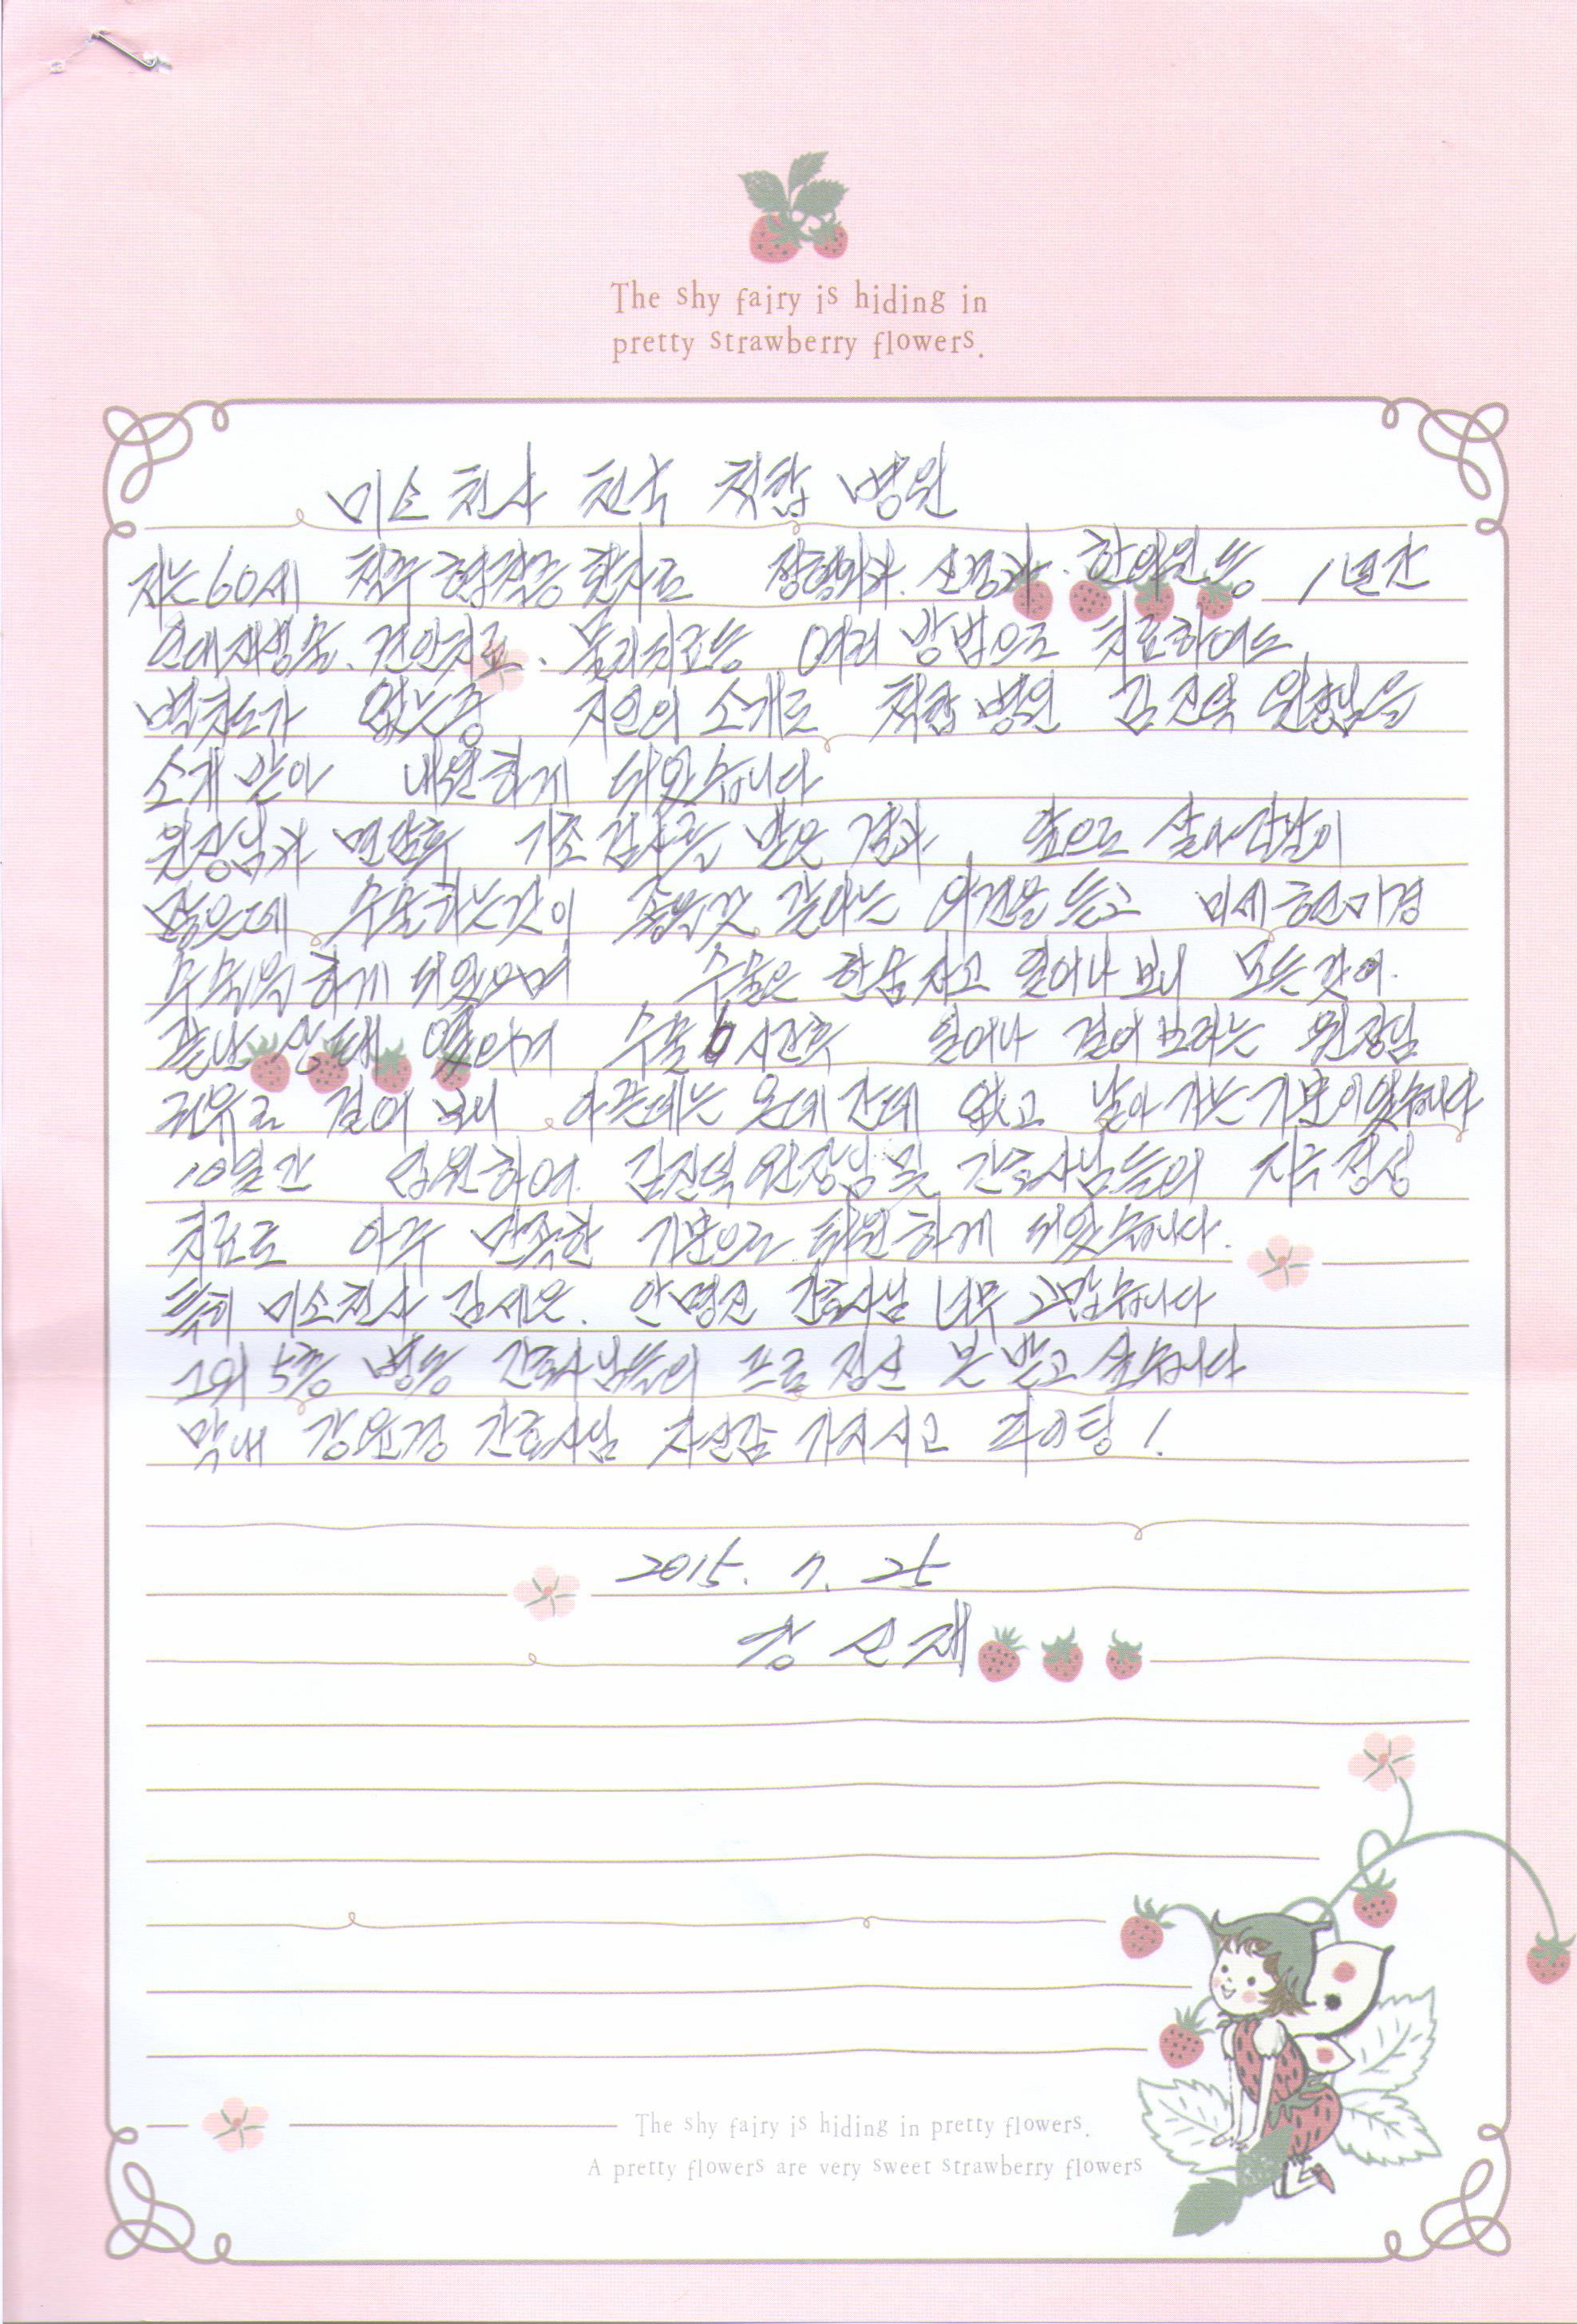 The shy fairy is hiding in
pretty strawberry flowers.
미소 천사 천국 척탑 병원
저는 60세 척추 협착증 환자로 정형외과. 신경과. 한의원등 1년간
물리치료등 여러 방법으로 치료하여도
별차도가 없는중 지인의 소개로 척탑 병원 김진덕 원장님을
소개 받아 내원하게 되었습니다
원장님과 면담후 기초 검사를 받은 결과, 앞으로 살아갈날이
많은데 수술하는것이 좋은것 같아는 의견을 듣고 미세 현미경
하게 되었으며 수술은 한숨자고 일어나 보니 모든것이.
끝난 상태 였으며 수술 6시간후 일어나 걸어 보라는 원장님
권유로 걸어 보니 아픈데는 온데 간데 없고 날아 가는 기분이었습니다
10일간 입원하여. 김진덕 원장님및 간호사님들의 지극정성
치료로 아주 만족한 기분으로 퇴원하게 되었습니다.
특히 미소천사 김세은. 안명진 간호사님 너무 고맙습니다
그외 5층 병동 간호사님들의 프로 정신 본 받고 싶습니다
막내 강윤경 간호사님 자신감 가지시고 파이팅!
2015. 7. 25
순재
The shy fairy is hiding in pretty flowers.
A pretty flowers are very sweet strawberry flowers